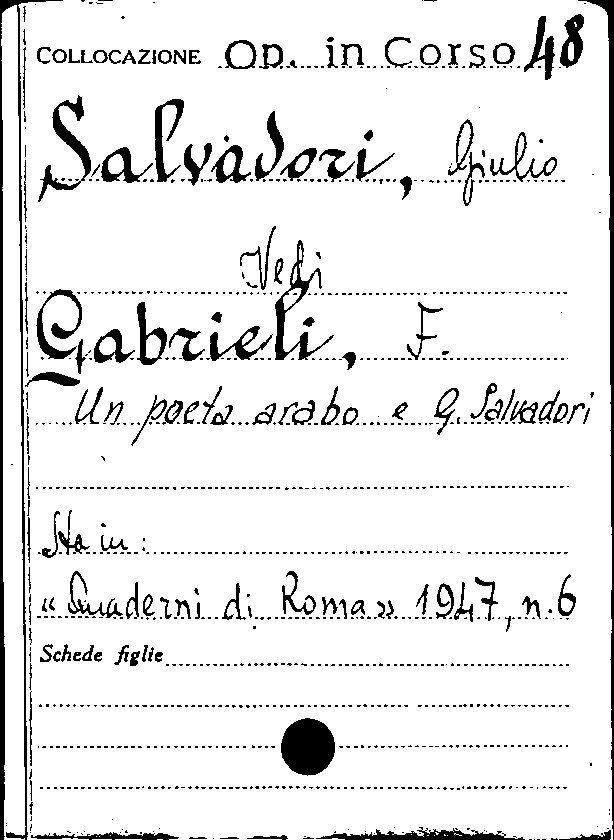 COLLOCAZIONE Op. in Corso 48
Salvadori, Giulio
Vedi
Gabrieli, F.
Un poeta arabo e G. Salvadori
Sta in:
« Quaderni di Roma » 1947, n. 6
Schede figlie